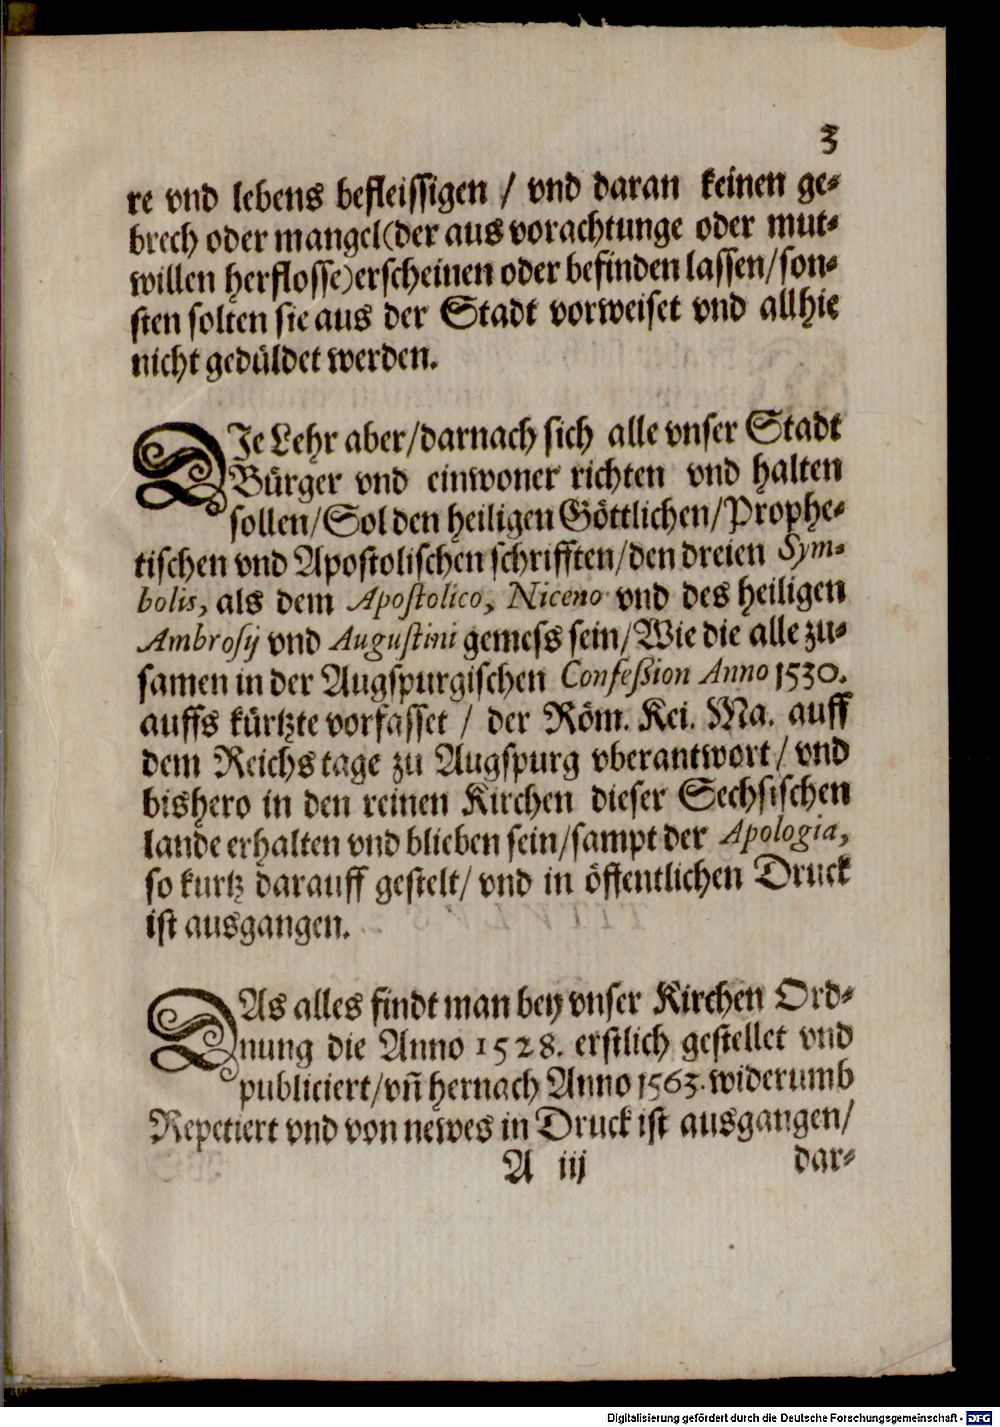 3
re vnd lebens befleissigen / vnd daran keinen ge-
brech oder mangel(der aus vorachtunge oder mut-
willen herflosse)erscheinen oder befinden lassen/son-
sten solten sie aus der Stadt vorweiset vnd allhie
nicht gedüldet werden.
DJe Lehr aber/darnach sich alle vnser Stadt
Bürger vnd einwoner richten vnd halten
sollen/Sol den heiligen Göttlichen/Prophe-
tischen vnd Apostolischen schrifften/den dreien Sym-
bolis, als dem Apostolico, Niceno vnd des heiligen
Ambrosij vnd Augustini gemess sein/Wie die alle zu-
samen in der Augspurgischen Confession Anno 1530.
auffs kürtzte vorfasset / der Röm. Kei. Ma. auff
dem Reichs tage zu Augspurg vberantwort/ vnd
bishero in den reinen Kirchen dieser Sechsischen
lande erhalten vnd blieben sein/sampt der Apologia,
so kurtz darauff gestelt/ vnd in öffentlichen Druck
ist ausgangen.
DAs alles findt man bey vnser Kirchen Ord-
nung die Anno 1528. erstlich gestellet vnd
publiciert/vñ hernach Anno 1563. widerumb
Repetiert vnd von newes in Druck ist ausgangen/
A iij dar-
Digitalisierung gefördert durch die Deutsche Forschungsgemeinschaft - DFG